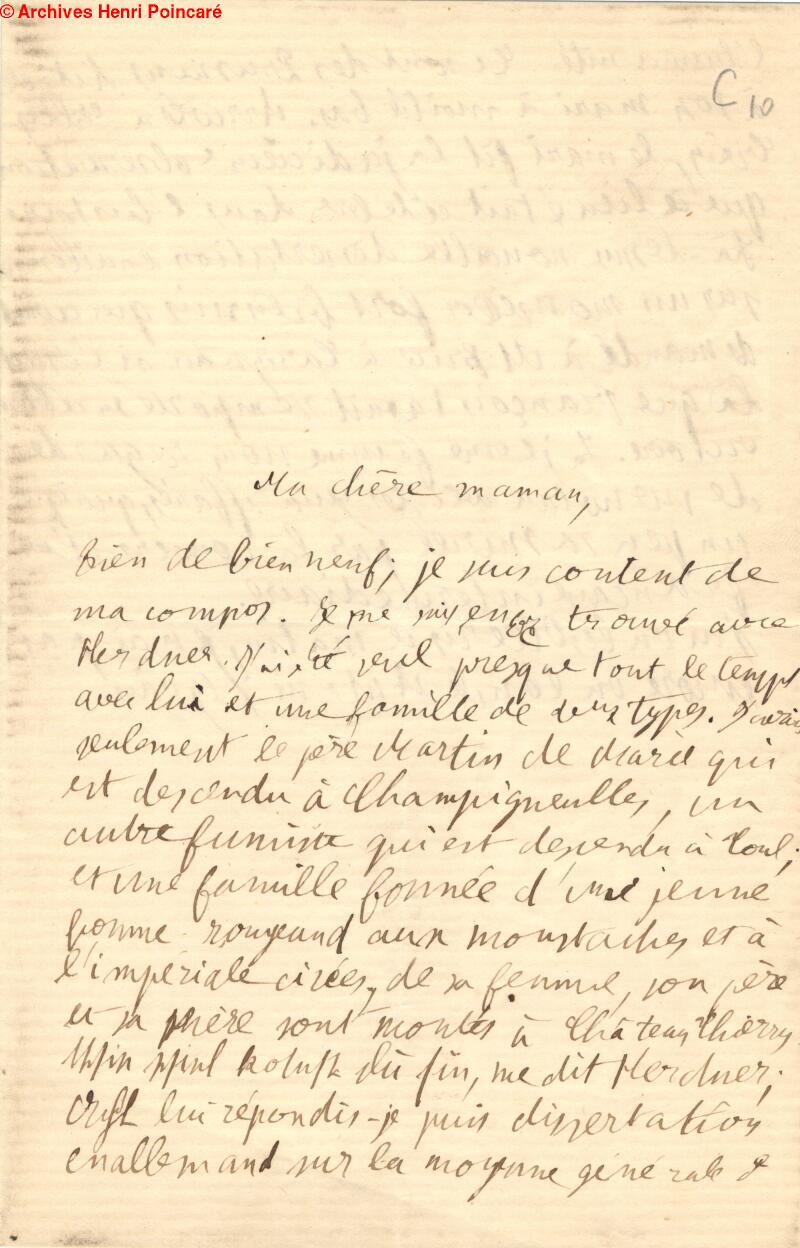 © Archives Henri Poincaré
C 10
Ma chère maman,
Rien de bien neuf; je suis content de
ma compos. Je me suis trouvé avec
Herdner. J'ai été seul presque tout le temps
avec lui et une famille de types. J'avais
seulement le père Martin de Marie qui
est descendu à Champigneulles, un
autre fumiste qui est descendu à Toul;
et une famille formée d'une jeune
homme rougeaud aux moustaches et à
l'impériale cirées, de sa femme, son père
et sa mère sont montés à Château Thierry.
du fin, me dit Herdner;
lui répondis-je puis dissertation
en allemand sur la moyenne générale d